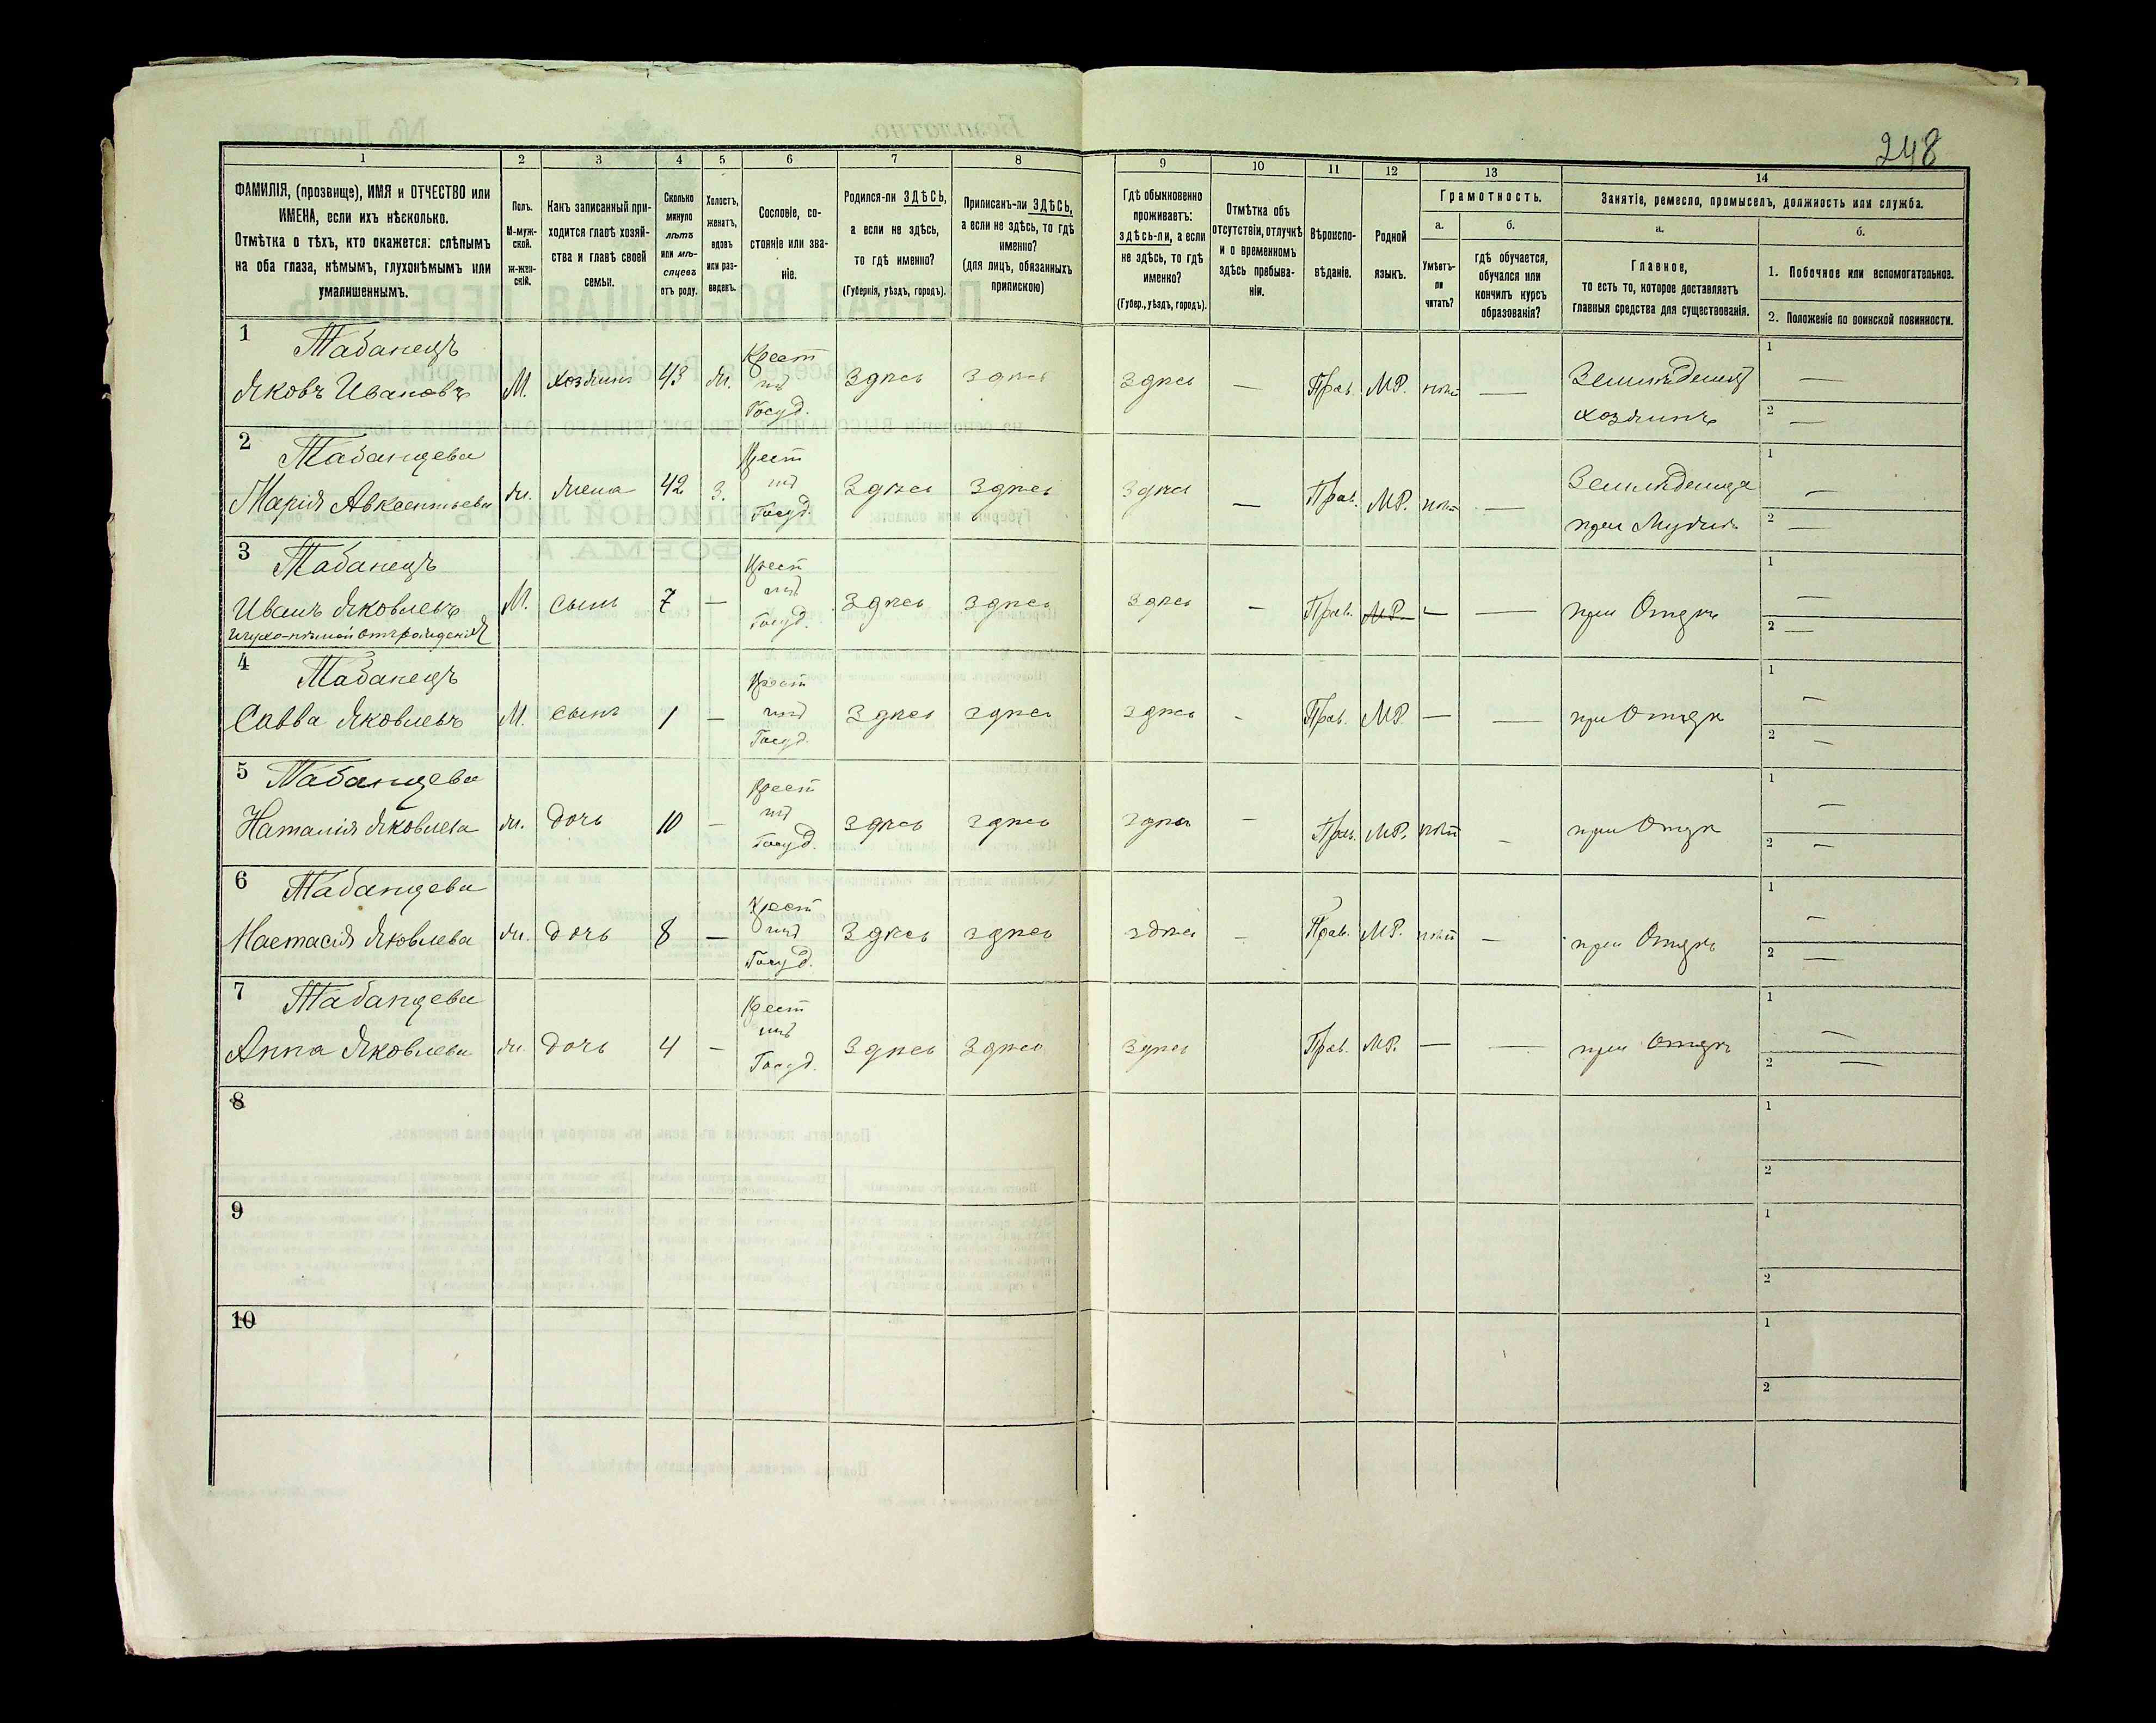 248
1 2 3 4 5 6 7 8 9 10 11 12 13 14
ФАМИЛІЯ, (прозвище), ИМЯ и ОТЧЕСТВО или
ИМЕНА, если ихъ нѣсколько.
Отмѣтка о тѣхъ, кто окажется: слѣпымъ
на оба глаза, нѣмымъ, глухонѣмымъ или
умалишеннымъ.
Полъ.
М-муж-
ской.
ж-жен-
скій.
Какъ записанный при-
ходится главѣ хозяй-
ства и главѣ своей
семьи.
Сколько
минуло
лѣтъ
или мѣ-
сяцевъ
отъ роду.
Холостъ,
женатъ,
вдовъ
или раз-
веденъ.
Сословіе, со-
стояніе или зва-
ніе.
Родился-ли ЗДѢСЬ,
а если не здѣсь,
то гдѣ именно?
(Губернія, уѣздъ, городъ).
Приписанъ-ли ЗДѢСЬ,
а если не здѣсь, то гдѣ
именно?
(для лицъ, обязанныхъ
припискою)
Гдѣ обыкновенно
проживаетъ:
здѣсь-ли, а если
не здѣсь, то гдѣ
именно?
(Губер., уѣздъ, городъ).
Отмѣтка объ
отсутствіи, отлучкѣ
и о временномъ
здѣсь пребыва-
ніи.
Вѣроиспо-
вѣданіе.
Родной
языкъ.
Грамотность.
а.
Умѣетъ-
ли
читать?
б.
гдѣ обучается,
обучался или
кончилъ курсъ
образованія?
Занятіе, ремесло, промыселъ, должность или служба.
а.
Главное,
то есть то, которое доставляетъ
главныя средства для существованія.
б.
1. Побочное или вспомогательное.
2. Положеніе по воинской повинности.
1 Табанецъ
Яковъ Ивановъ М. Хозяинъ 43 Ж. Крест изъ Госуд. Здѣсь Здѣсь Здѣсь — Прав. МР. нѣт — Земледѣлецъ хозяинъ 1 — 2 —
2 Табанцева
Марія Авксентьева Ж. Жена 42 З. Крест изъ Госуд. Здѣсь Здѣсь Здѣсь — Прав. МР. нѣт — Земледѣлица при Мужѣ 1 — 2 —
3 Табанецъ
Иванъ Яковлевъ М. Сынъ 7 — Крест изъ Госуд. Здѣсь Здѣсь Здѣсь — Прав. МР. — — при Отцѣ 1 — 2 —
глухо-нѣмой отъ рожденія
4 Табанецъ
Савва Яковлевъ М. Сынъ 1 — Крест изъ Госуд. Здѣсь Здѣсь Здѣсь — Прав. МР. — — при Отцѣ 1 — 2 —
5 Табанцева
Наталія Яковлева Ж. Дочь 10 — Крест изъ Госуд. Здѣсь Здѣсь Здѣсь — Прав. МР. нѣт — при Отцѣ 1 — 2 —
6 Табанцева
Настасія Яковлева Ж. Дочь 8 — Крест изъ Госуд. Здѣсь Здѣсь Здѣсь — Прав. МР. нѣт — при Отцѣ 1 — 2 —
7 Табанцева
Анна Яковлева Ж. Дочь 4 — Крест изъ Госуд. Здѣсь Здѣсь Здѣсь Прав. МР. — — при Отцѣ 1 — 2 —
8 1 2
9 1 2
10 1 2